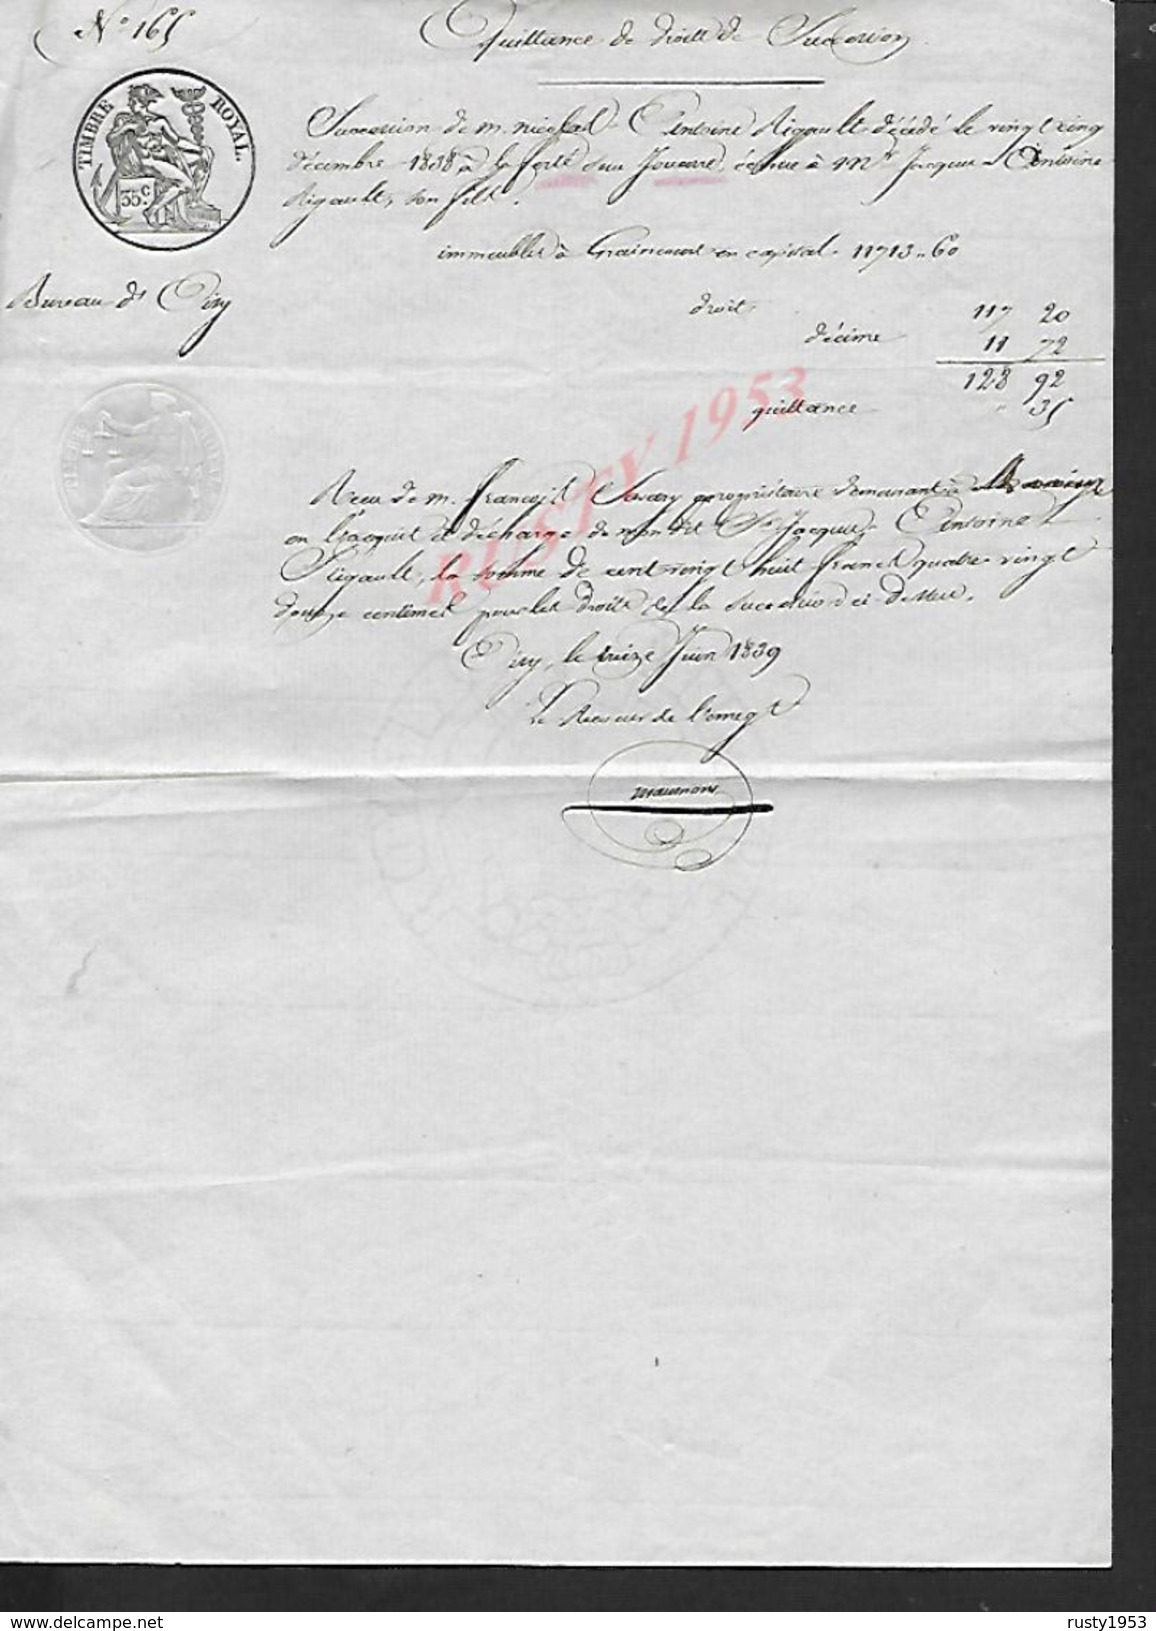 N° 165
Quittance de droits de Succession
TIMBRE ROYAL.
35 c.
Succession de m. nicolas Antoine Rigault décédé le vingt cinq
décembre 1838 à la ferté sous Jouarre, échue à Mr Jacques Antoine
Rigault, son fils.
immeubles à en capital. 11713 " 60
Bureau d'
droit 117 20
décime 11 72
128 92
quittance " 35
RUSTY 1953
Reçu de m. françois Savary propriétaire demeurant à
en l'acquit et décharge de mon dit Sr Jacques Antoine
Rigault, la somme de cent vingt huit francs quatre vingt
douze centimes pour les droits de la succession ci dessus.
le Juin 1839
Le Receveur de l'Enregt
rusty1953